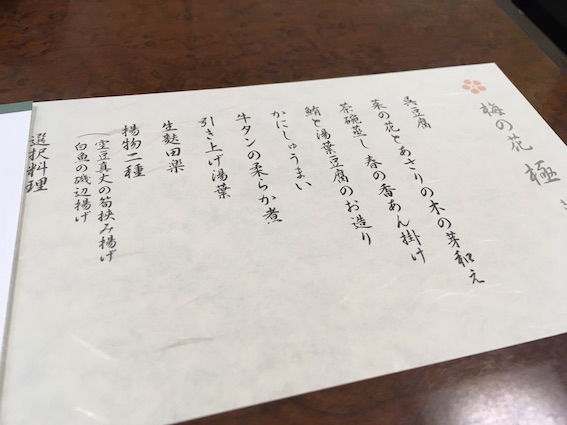 梅の花 極
呉豆腐
菜の花とあさりの木の芽和え
茶碗蒸し 春の香あん掛け
鮪と湯葉豆腐のお造り
かにしゅうまい
牛タンの柔らか煮
引き上げ湯葉
生麩田楽
揚物二種
空豆真丈の筍挟み揚げ
白魚の磯辺揚げ
選択料理